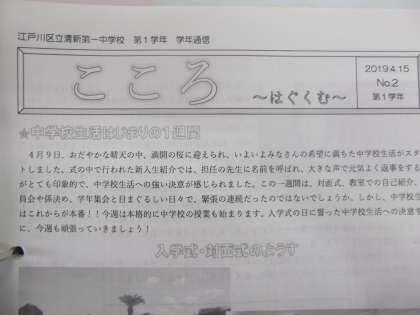 江戸川区立清新第一中学校 第1学年 学年通信
こころ
~はぐくむ~
2019.4.15
No.2
第1学年
★中学校生活はじまりの1週間
4月9日、おだやかな晴天の中、満開の桜に迎えられ、いよいよみなさんの希望に満ちた中学校生活がスタ
トしました。式の中で行われた新入生紹介では、担任の先生に名前を呼ばれ、大きな声で元気よく返事をする
がとても印象的で、中学校生活への強い決意が感じられました。この一週間は、対面式、教室での自己紹介、
員会や係決め、学年集会と目まぐるしい日々で、緊張の連続だったのではないでしょうか。しかし、中学校生
はこれからが本番!!今週は本格的に中学校の授業も始まります。入学式の日に誓った中学校生活への決意を
に、今週も頑張っていきましょう!
入学式・対面式のようす